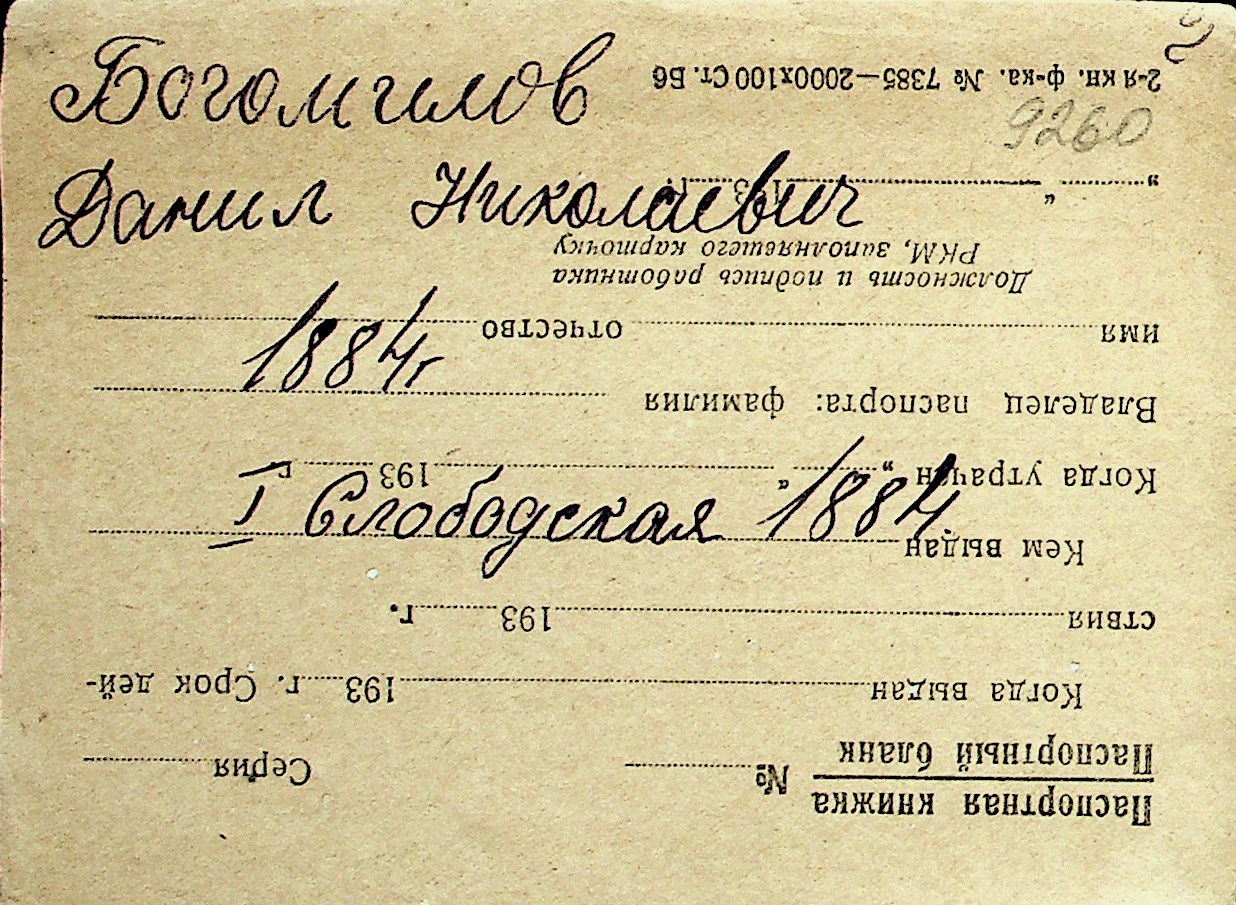 Богомилов
Данил Николаевич
1884 г
I Слободская 1884
9260
Паспортная книжка
Паспортный бланк
№ Серия
Когда выдан 193 г. Срок дей-
ствия 193 г.
Кем выдан
Когда утрачен „ “ 193 г.
Владелец паспорта: фамилия
имя отчество
Должность и подпись работника
РКМ, заполняяшего карточку
„ “ 193 г.
2-я кн. ф-ка. № 7385—2000х100 Ст. Б6